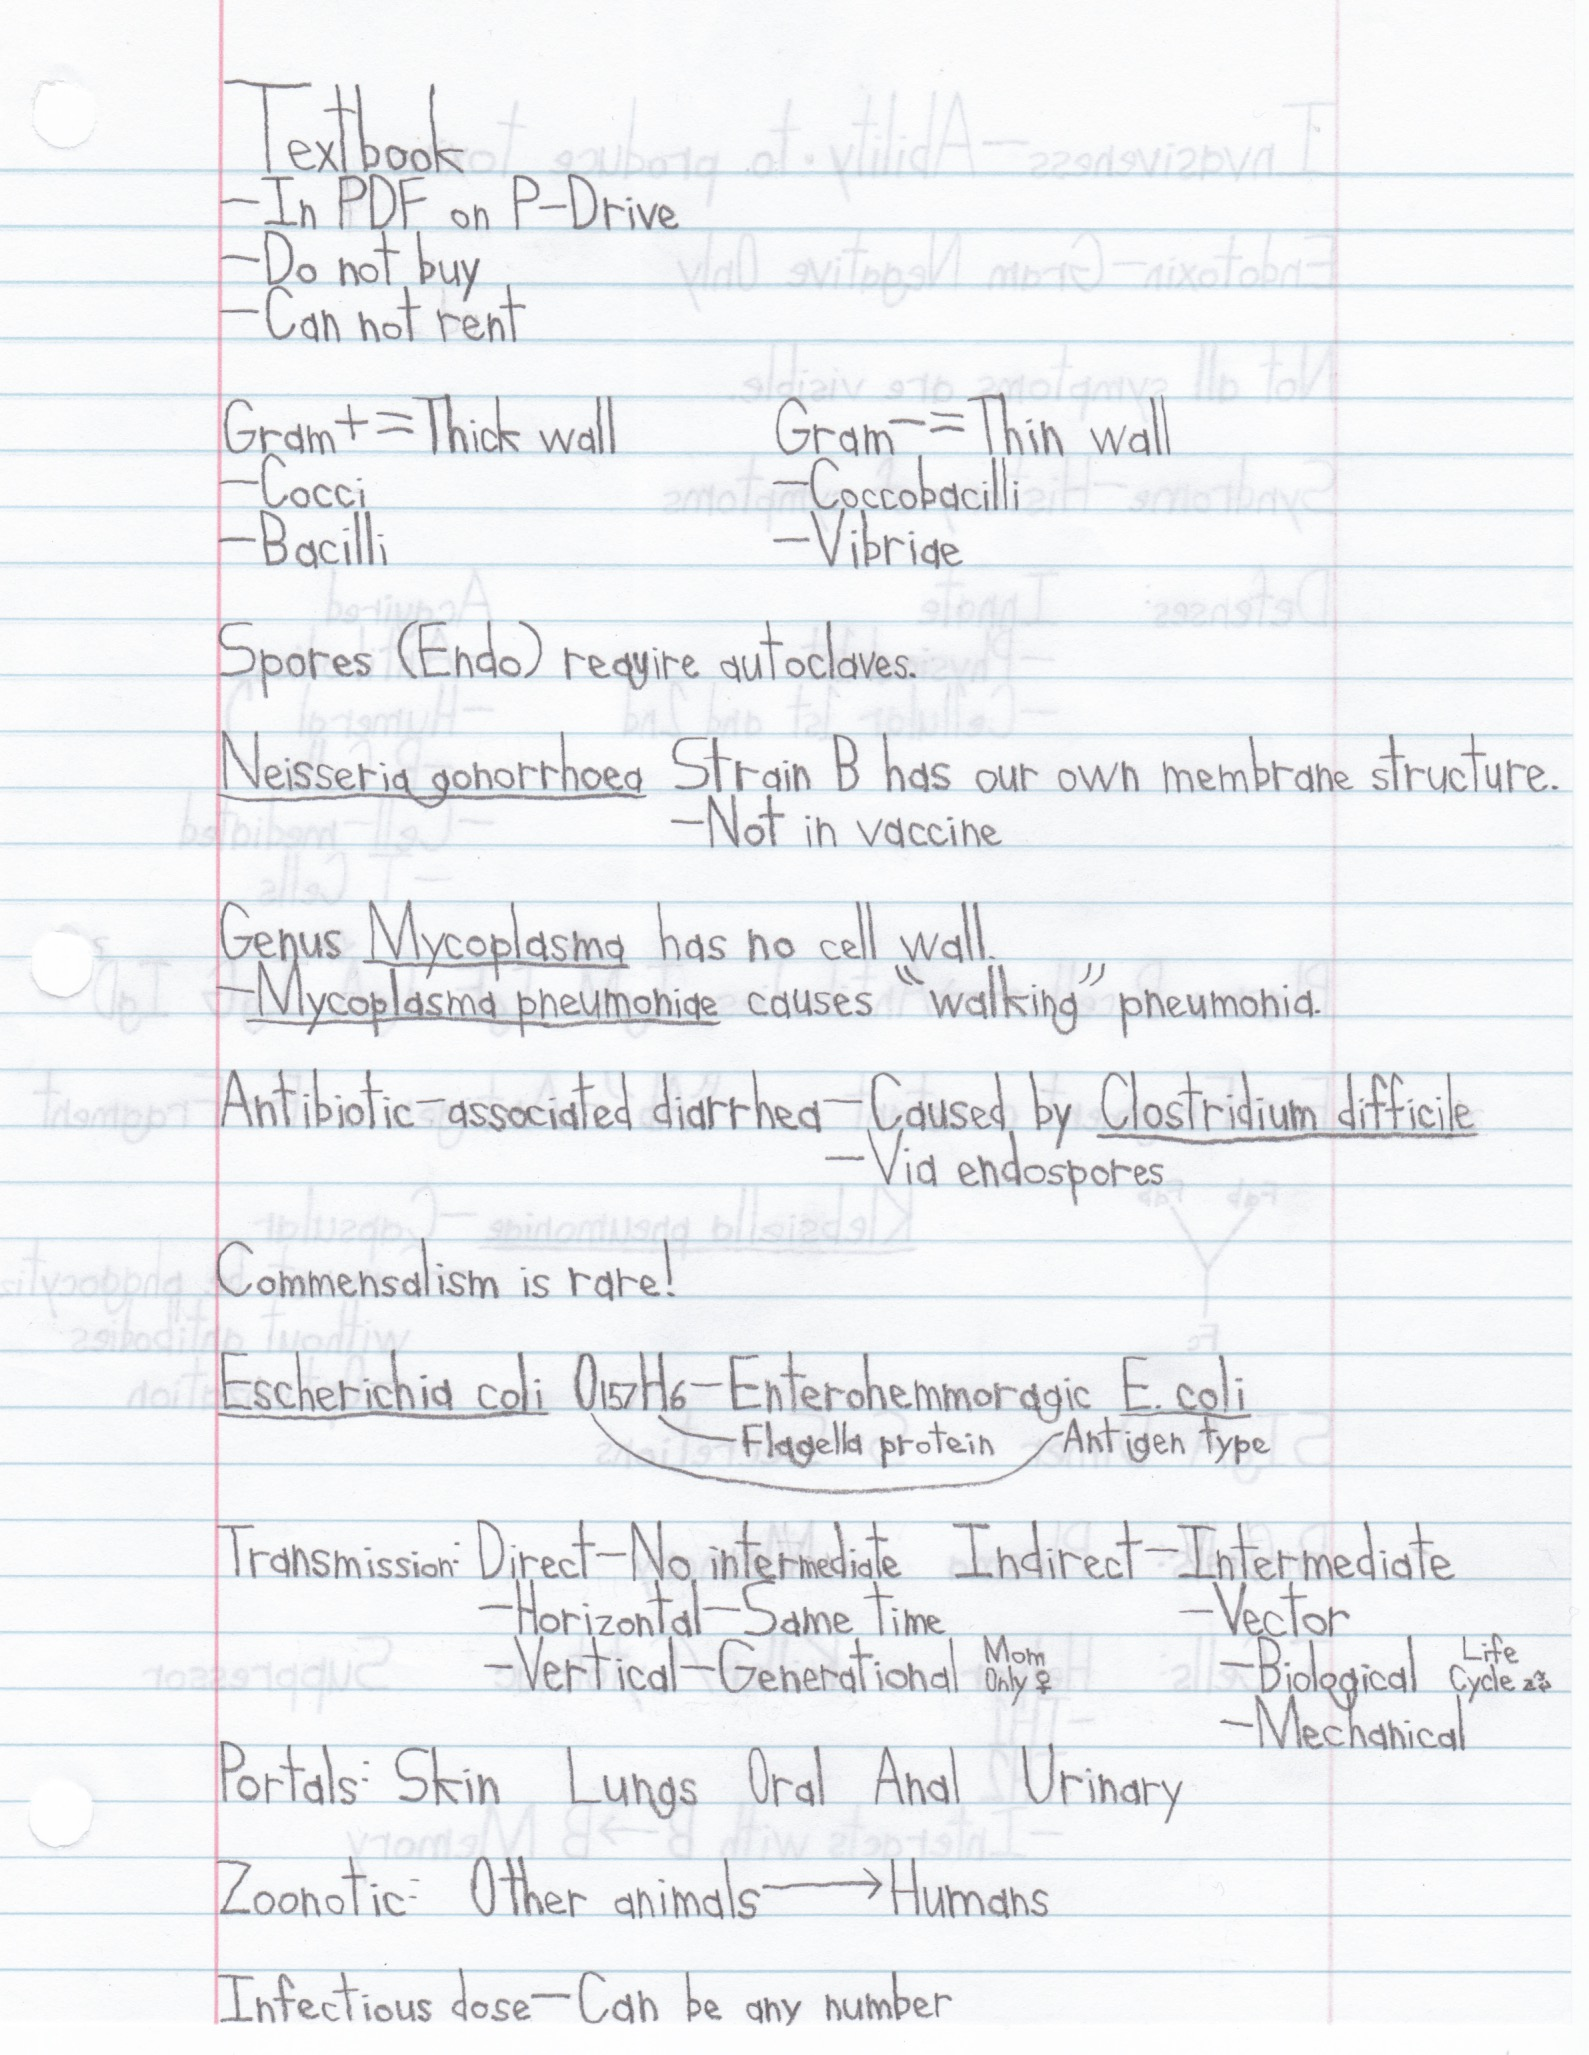 Textbook
-In PDF on P-Drive
-Do not buy
-Can not rent
Gram+=Thick wall Gram-=Thin wall
-Cocci -Coccobacilli
-Bacilli -Vibriae
Spores (Endo) require autoclaves.
Neisseria gohorrhoea Strain B has our own membrane structure.
-Not in vaccine
Genus Mycoplasma has no cell wall.
-Mycoplasma pneumoniae causes "walking" pneumonia.
Antibiotic-associated diarrhea-Caused by Clostridium difficile
-Via endospores
Commensalism is rare!
Escherichia coli O157H6-Enterohemmoragic E. coli
Flagella protein Antigen type
Transmission: Direct-No intermediate Indirect-Intermediate
-Horizontal-Same time -Vector
-Vertical-Generational Mom Only ♀ -Biological Life Cycle
-Mechanical
Portals: Skin Lungs Oral Anal Urinary
Zoonotic: Other animals→Humans
Infectious dose-Can be any number